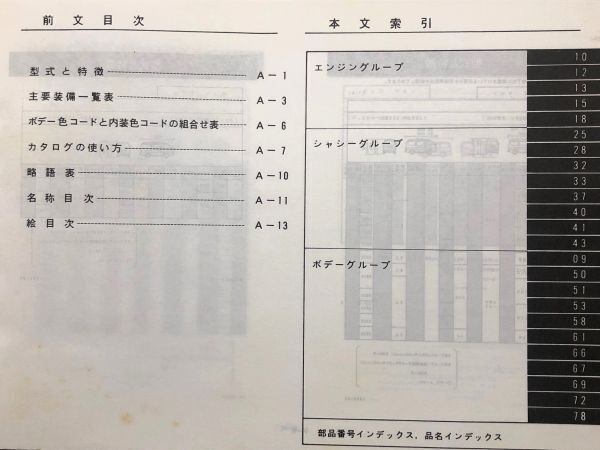 前文目次
型式と特徴 A-1
主要装備一覧表 A-3
ボデー色コードと内装色コードの組合せ表 A-6
カタログの使い方 A-7
略語表 A-10
名称目次 A-11
絵目次 A-13
本文索引
エンジングループ
10
12
13
15
18
シャシーグループ
25
28
32
33
37
40
41
43
ボデーグループ
09
50
51
53
58
61
66
67
69
72
78
部品番号インデックス，品名インデックス